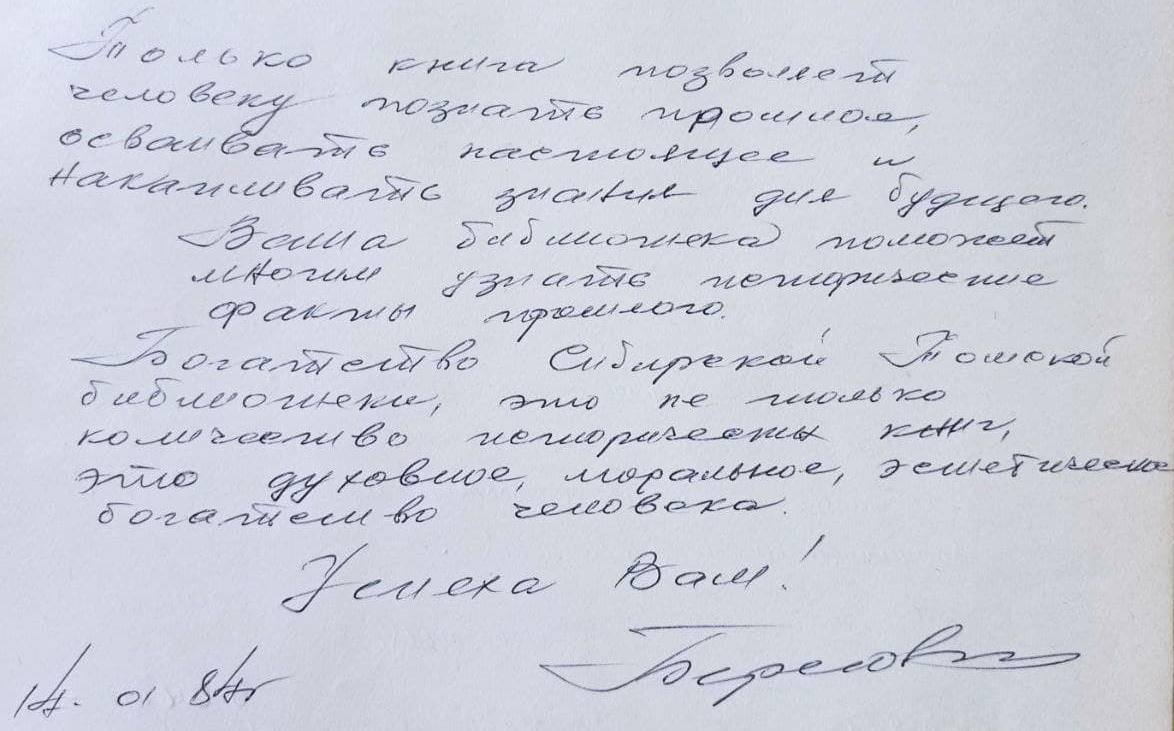 Только книга позволяет
человеку познать прошлое,
осваивать настоящее и
накапливать знания для будущего.
Ваша библиотека поможет
многим узнать исторические
факты прошлого.
Богатство Сибирской Томской
библиотеки, это не только
количество исторических книг,
это духовное, моральное, эстетическое
богатство человека.
Успеха Вам!
14. 01. 84г